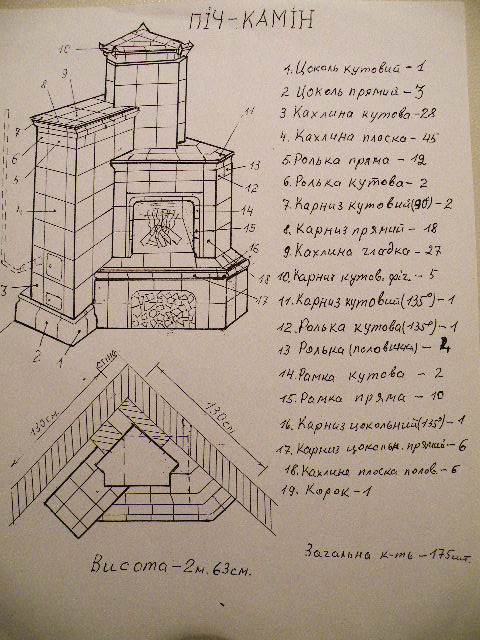 ПІЧ-КАМІН
1. Цоколь кутовий - 1
2 Цоколь прямий - 3
3 Кахлина кутова - 28
4. Кахлина плоска - 45
5. Ролька пряма - 19
6. Ролька кутова - 2
7. Карниз кутовий (90°) - 2
8. Карниз прямий - 18
9. Кахлина гладка - 27
10. Карниз кутов. фіг. - 5
11. Карниз кутовий (135°) - 1
12. Ролька кутова (135°) - 1
13 Ролька (половинка) - 4
14. Рамка кутова - 2
15. Рамка пряма - 10
16. Карниз цокольний (135°) - 1
17. Карниз цокольн. прямий - 6
18. Кахлина плоска полов. - 6
19. Корок - 1
Загальна к-ть - 175 шт.
10
9
8
7
6
5
4
3
2
1
11
13
12
14
15
16
18
17
стіна
130см.
130см
Висота - 2 м. 63 см.